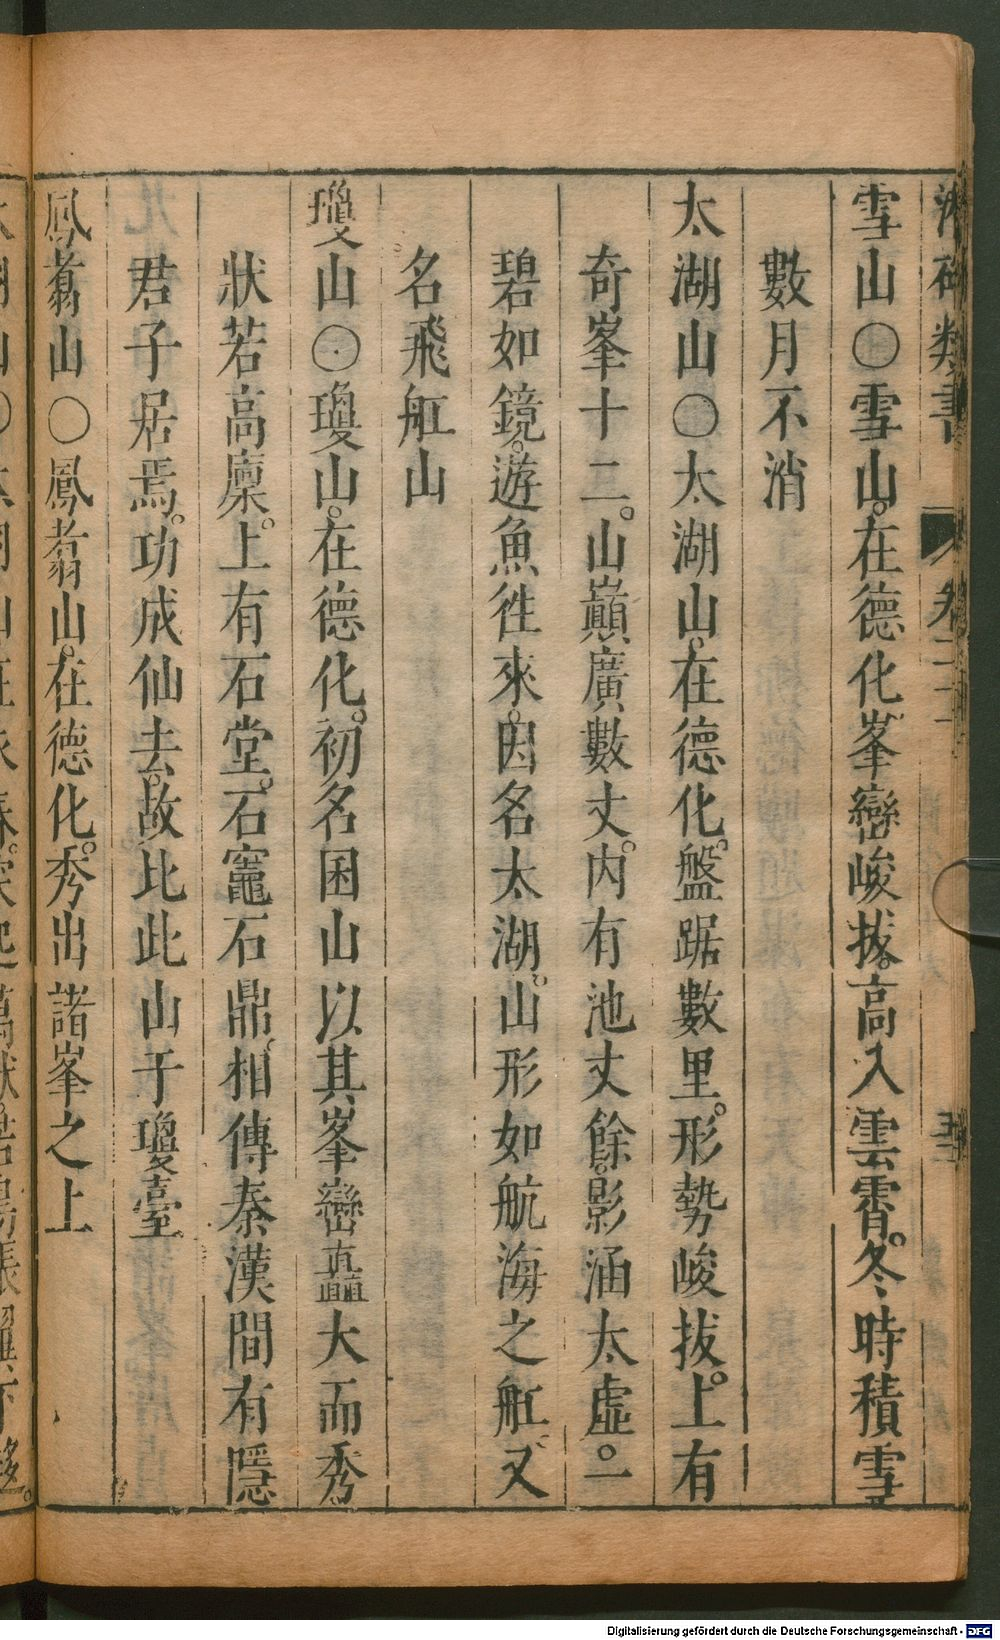 類書 卷二十
雪山○雪山。在德化峯巒峻拔。高入雲霄。冬時積雪
數月不消
太湖山○太湖山。在德化。盤踞數里。形勢峻拔。上有
奇峯十二。山巔廣數丈。內有池丈餘。影涵太虛。一
碧如鏡。遊魚徃來。因名太湖。山形如航海之舡。又
名飛舡山
瓊山○瓊山。在德化。初名困山以其峯巒矗大而秀
狀若高廩。上有石堂。石竈石鼎。相傳秦漢間有隱
君子居焉。功成仙去。故比此山于瓊臺。
鳳翥山○鳳翥山。在德化。秀出諸峯之上
Digitalisierung gefördert durch die Deutsche Forschungsgemeinschaft - DFG